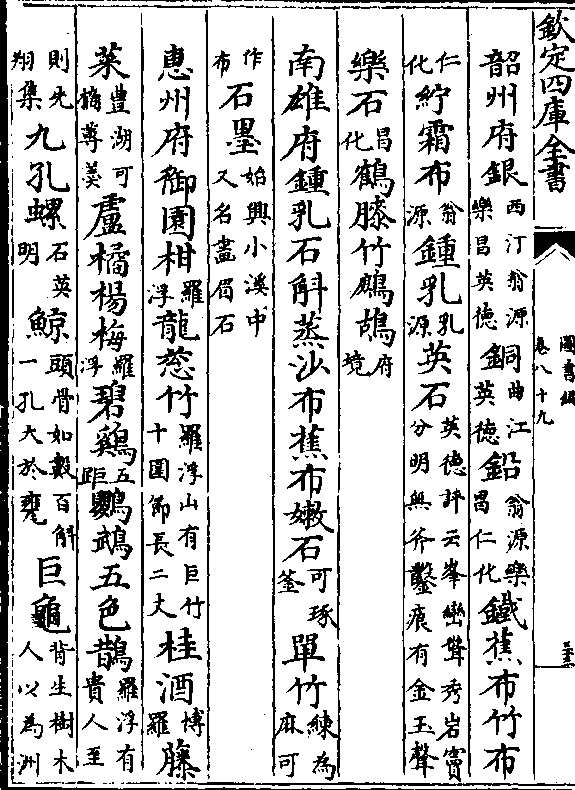 欽定四庫全書
圖書編
卷八十九
韶州府銀西汀翁源樂昌英德銅曲江英德鉛翁源樂昌仁化鐵蕉布竹布
仁化紵霜布翁源鍾乳乳源英石英德評云峯巒聳秀岩竇分明無斧鑿痕有金玉聲
樂石昌化鶴膝竹鷓鴣府境
南雄府鍾乳石斛蒸沙布蕉布嫩石可琢釜單竹練為麻可
作布石墨始興小溪中又名畫眉石
惠州府御園柑羅浮龍蔥竹羅浮山有巨竹十圍節長二丈桂酒博羅藤
菜豊湖可梅蓴羮盧橘楊梅羅浮碧雞五距鸚鵡五色鵲羅浮有貴人至
則先翔集九孔螺石英明鯨頭骨如數百斛一孔大於甕巨龜背生樹木人以為洲